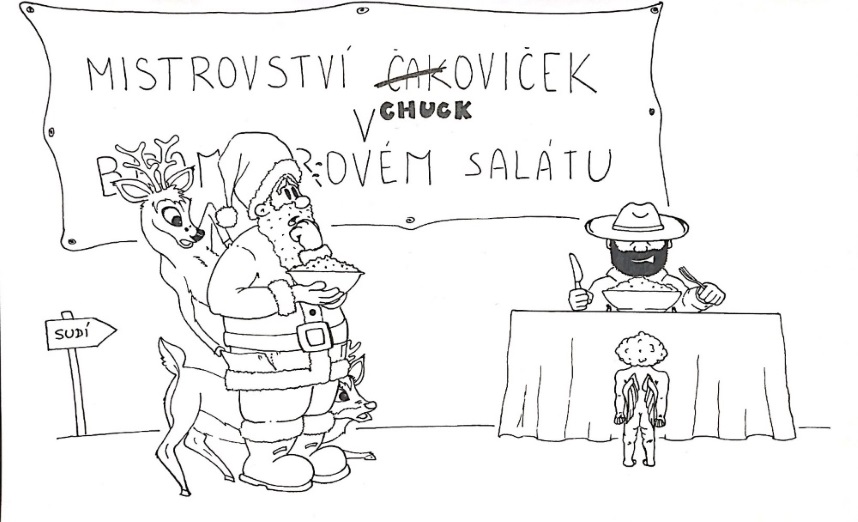 MISTROVSTVÍ ČAKOVIČEK
CHUCK
V
OVÉM SALÁTU
SUDÍ